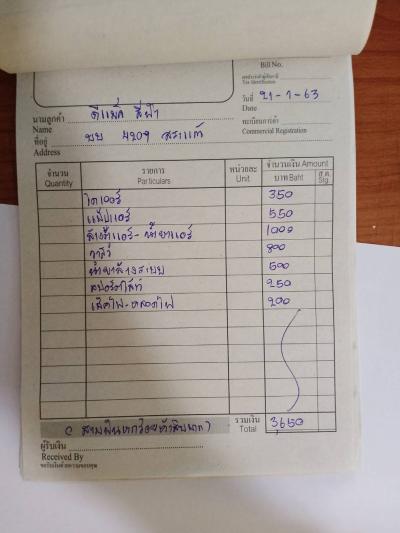 Bill No.
เลขประจำตัวผู้เสียภาษี
Tax Identification
วันที่ 21-1-63
Date
นามลูกค้า ดีแม็ค สีฟ้า
Name
ทะเบียนการค้า
ที่อยู่ บบ 4209 สระแก้ว
Commercial Registration
Address
จำนวน รายการ หน่วยละ จำนวนเงิน Amount
Quantity Particulars Unit บาท Baht ส.ต. Stg.
ไดเออร์ 350
แผ้ปแอร์ 550
ล้างตู้แอร์-น้ำยาแอร์ 1000
วาล์ว 800
น้ำยาล้างระบบ 500
สปอร์ตไลท์ 250
เสดไฟ-หลอดไฟ 200
(สามพันหกร้อยห้าสิบบาท) รวมเงิน Total 3,650
ผู้รับเงิน
Received By
ขอรับเงินด้วยความขอบคุณ